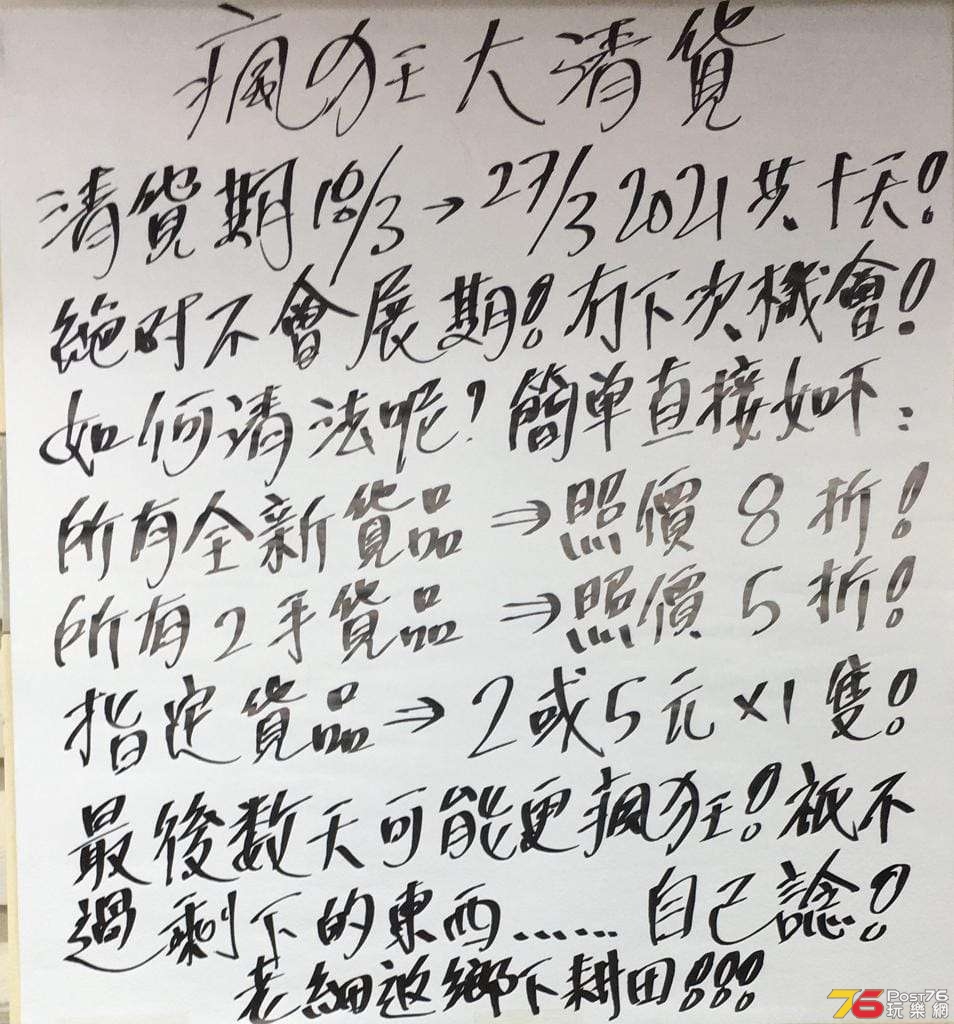 瘋狂大清貨
清貨期18/3→27/3 2021共十天!
絕对不會展期!冇下次機會!
如何清法呢?簡单直接如下:
所有全新貨品⇒照價8折!
所有2手貨品⇒照價5折!
指定貨品⇒2或5元×1隻!
最後数天可能更瘋狂!祇不
過剩下的東西......自己諗!
老細返鄉下耕田!!!
76 Post76
玩樂網